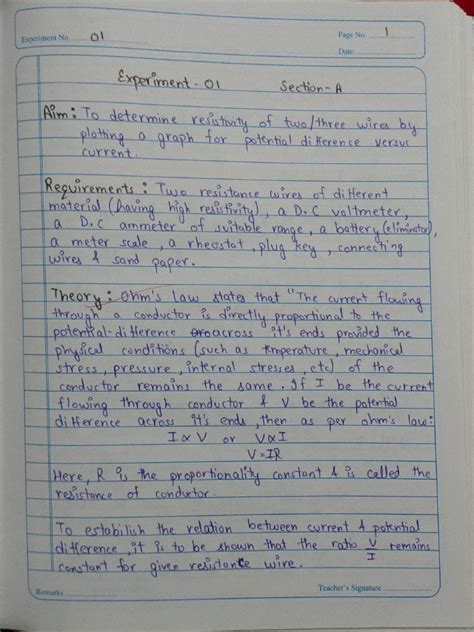 Experiment No. 01
Page No. 1
Date.
Experiment-01 Section-A
Aim: To determine resistivity of two/three wires by
plotting a graph for potential difference versus
current.
Requirements: Two resistance wires of different
material (having high resistivity), a D.C voltmeter,
a D.C ammeter of suitable range, a battery (eliminator),
a meter scale, a rheostat, plug key, connecting
wires & sand paper.
Theory: Ohm's law states that "The current flowing
through a conductor is directly proportional to the
potential-difference across it's ends provided the
physical conditions (such as temperature, mechanical
stress, pressure, internal stresses, etc) of the
conductor remains the same. If I be the current
flowing through conductor & V be the potential
difference across it's ends, then as per ohm's law:
I ∝ V or V ∝ I
V = IR
Here, R is the proportionality constant & is called the
resistance of conductor.
To estabilish the relation between current & potential
difference, it is to be shown that the ratio V/I remains
constant for given resistance wire.
Remarks
Teacher's Signature